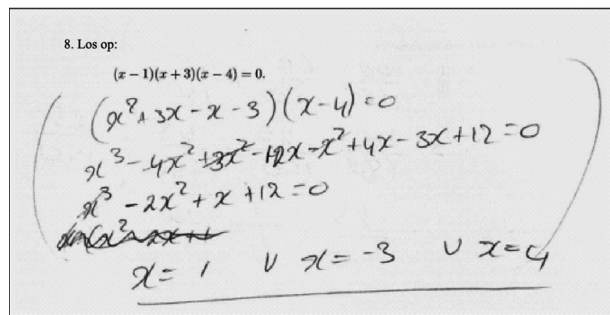 8. Los op:
(x − 1)(x + 3)(x − 4) = 0.
(x² + 3x − x − 3)(x − 4) = 0
x³ − 4x² + 3x² − 12x − x² + 4x − 3x + 12 = 0
x³ − 2x² + x + 12 = 0
x = 1 ∪ x = −3 ∪ x = 4